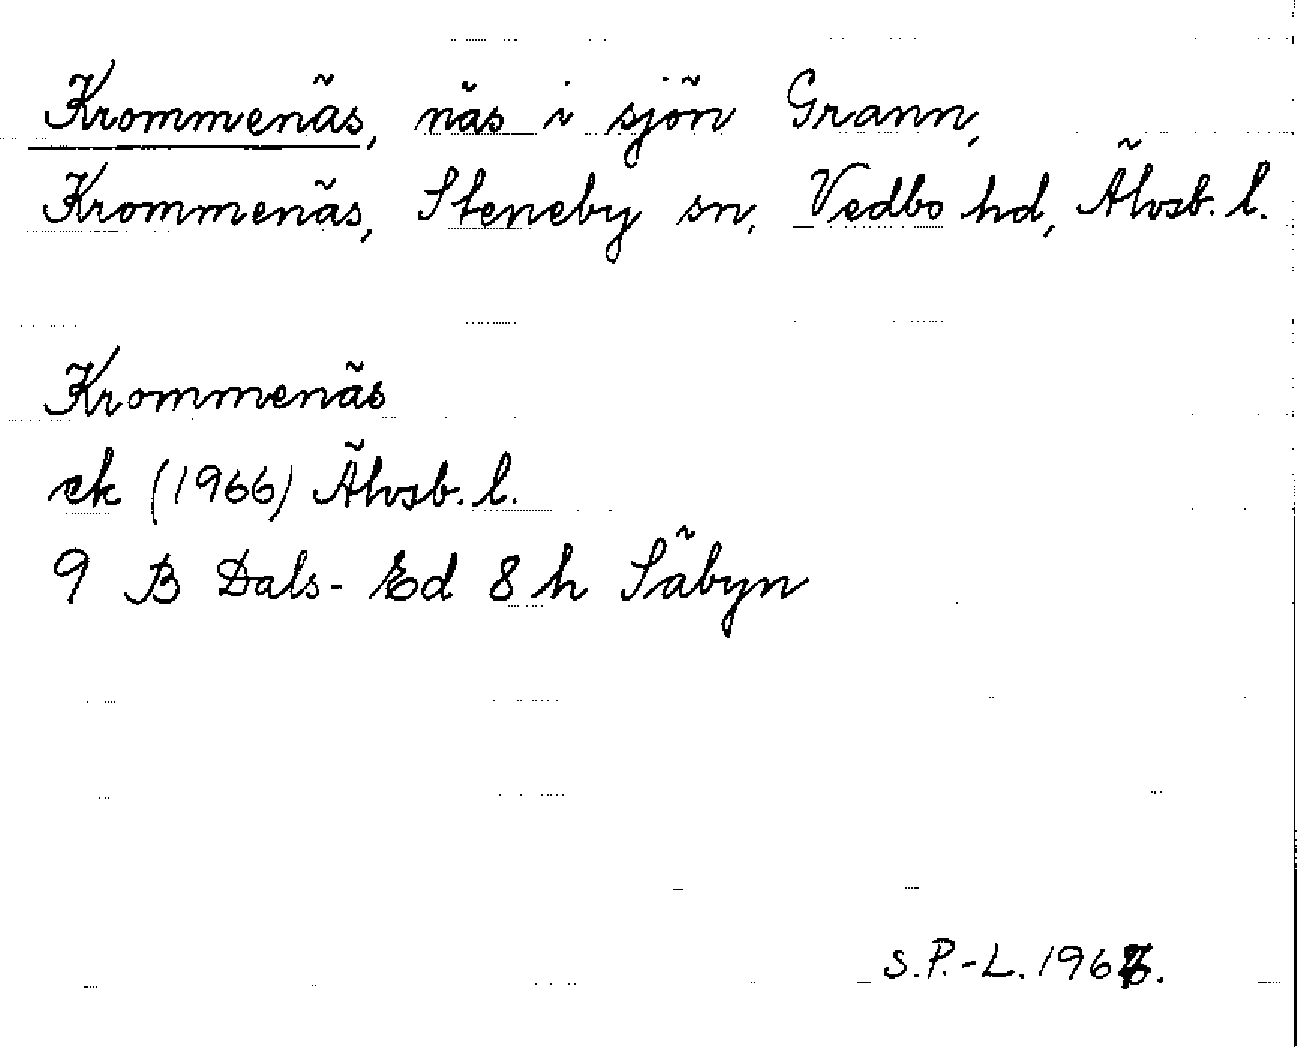 Krommenäs, näs i sjön Grann,
Krommenäs, Steneby sn, Vedbo hd, Älvsb. l.
Krommenäs
ek (1966) Älvsb. l.
9 B Dals-Ed 8 h Säbyn
S.P.-L.